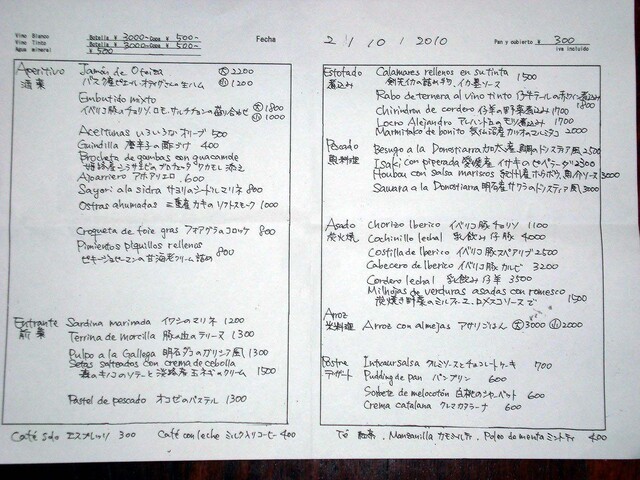 Vino Blanco Botella ¥ 3000- Copa ¥ 500-
Vino Tinto Botella ¥ 3000- Copa ¥ 500-
Agua mineral ¥ 500
Fecha 2 / 10 / 2010
Pan y cubierto ¥ 300
iva incluido
Aperitivo
酒菜
Jamón de Oteiza 大 2200
小 1200
Embutido mixto
イベリコ豚のチョリソ、ロモ、サルチチョンの盛り合わせ 大 1800
小 1000
Aceitunas いろいろなオリーブ 500
Guindilla 唐辛子の酢づけ 400
Brocheta de gambas con guacamole
Ajoarriero アホアリエロ 600
Sayori a la sidra サヨリのシードルマリネ 800
Ostras ahumadas 三重産カキのソフトスモーク 1000
Croqueta de foie gras フォアグラのコロッケ 800
Pimientos piquillos rellenos
800
Entrante
前菜
Sardina marinada イワシのマリネ 1200
Terrina de morcilla 豚の血のテリーヌ 1300
Pulpo a la Gallega 明石ダコのガリシア風 1300
Setas salteadas con crema de cebolla
森のキノコのソテーと淡路産玉ネギのクリーム 1500
Pastel de pescado オコゼのパステル 1300
Estofado
煮込み
Calamares rellenos en su tinta 1500
Rabo de ternera al vino tinto 仔牛テールの赤ワイン煮込み 1800
Chirindron de cordero 仔羊の野菜煮込み 1700
Locro Alejandro アレハンドロのモツ煮込み 1700
Marmitako de bonito 気仙沼産カツオのマルミタコ 2000
Pescado
魚料理
Besugo a la Donostiarra 加太産真鯛のドノスティア風 2500
Isaki con piperada 愛媛産イサキのピペラーダ 2300
Houbou con salsa mariscos 紀州産ホウボウ、魚介ソース 3000
Sawara a la Donostiarra 明石産サワラのドノスティア風 3000
Asado
炭火焼
Chorizo Iberico イベリコ豚チョリソ 1100
Cochinillo lechal 乳飲み仔豚 4000
Costilla de Iberico イベリコ豚スペアリブ 2500
Cabecero de Iberico イベリコ豚カルビ 3200
Cordero lechal 乳飲み仔羊 3500
Milhojas de verduras asadas con romesco
炭焼き野菜のミルフィーユ、ロメスコソースで 1500
Arroz
米料理
Arroz con almejas アサリごはん 大 3000 小 2000
Postre
デザート
Intxaursalsa クルミソースとチョコレートケーキ 700
Pudding de pan パンプリン 600
Sorbete de melocotón 白桃のシャーベット 600
Crema catalana クレマカタラーナ 600
Café solo エスプレッソ 300 Café con leche ミルク入りコーヒー 400
Té 紅茶、Manzanilla カモミールティ、Poleo de menta ミントティ 400